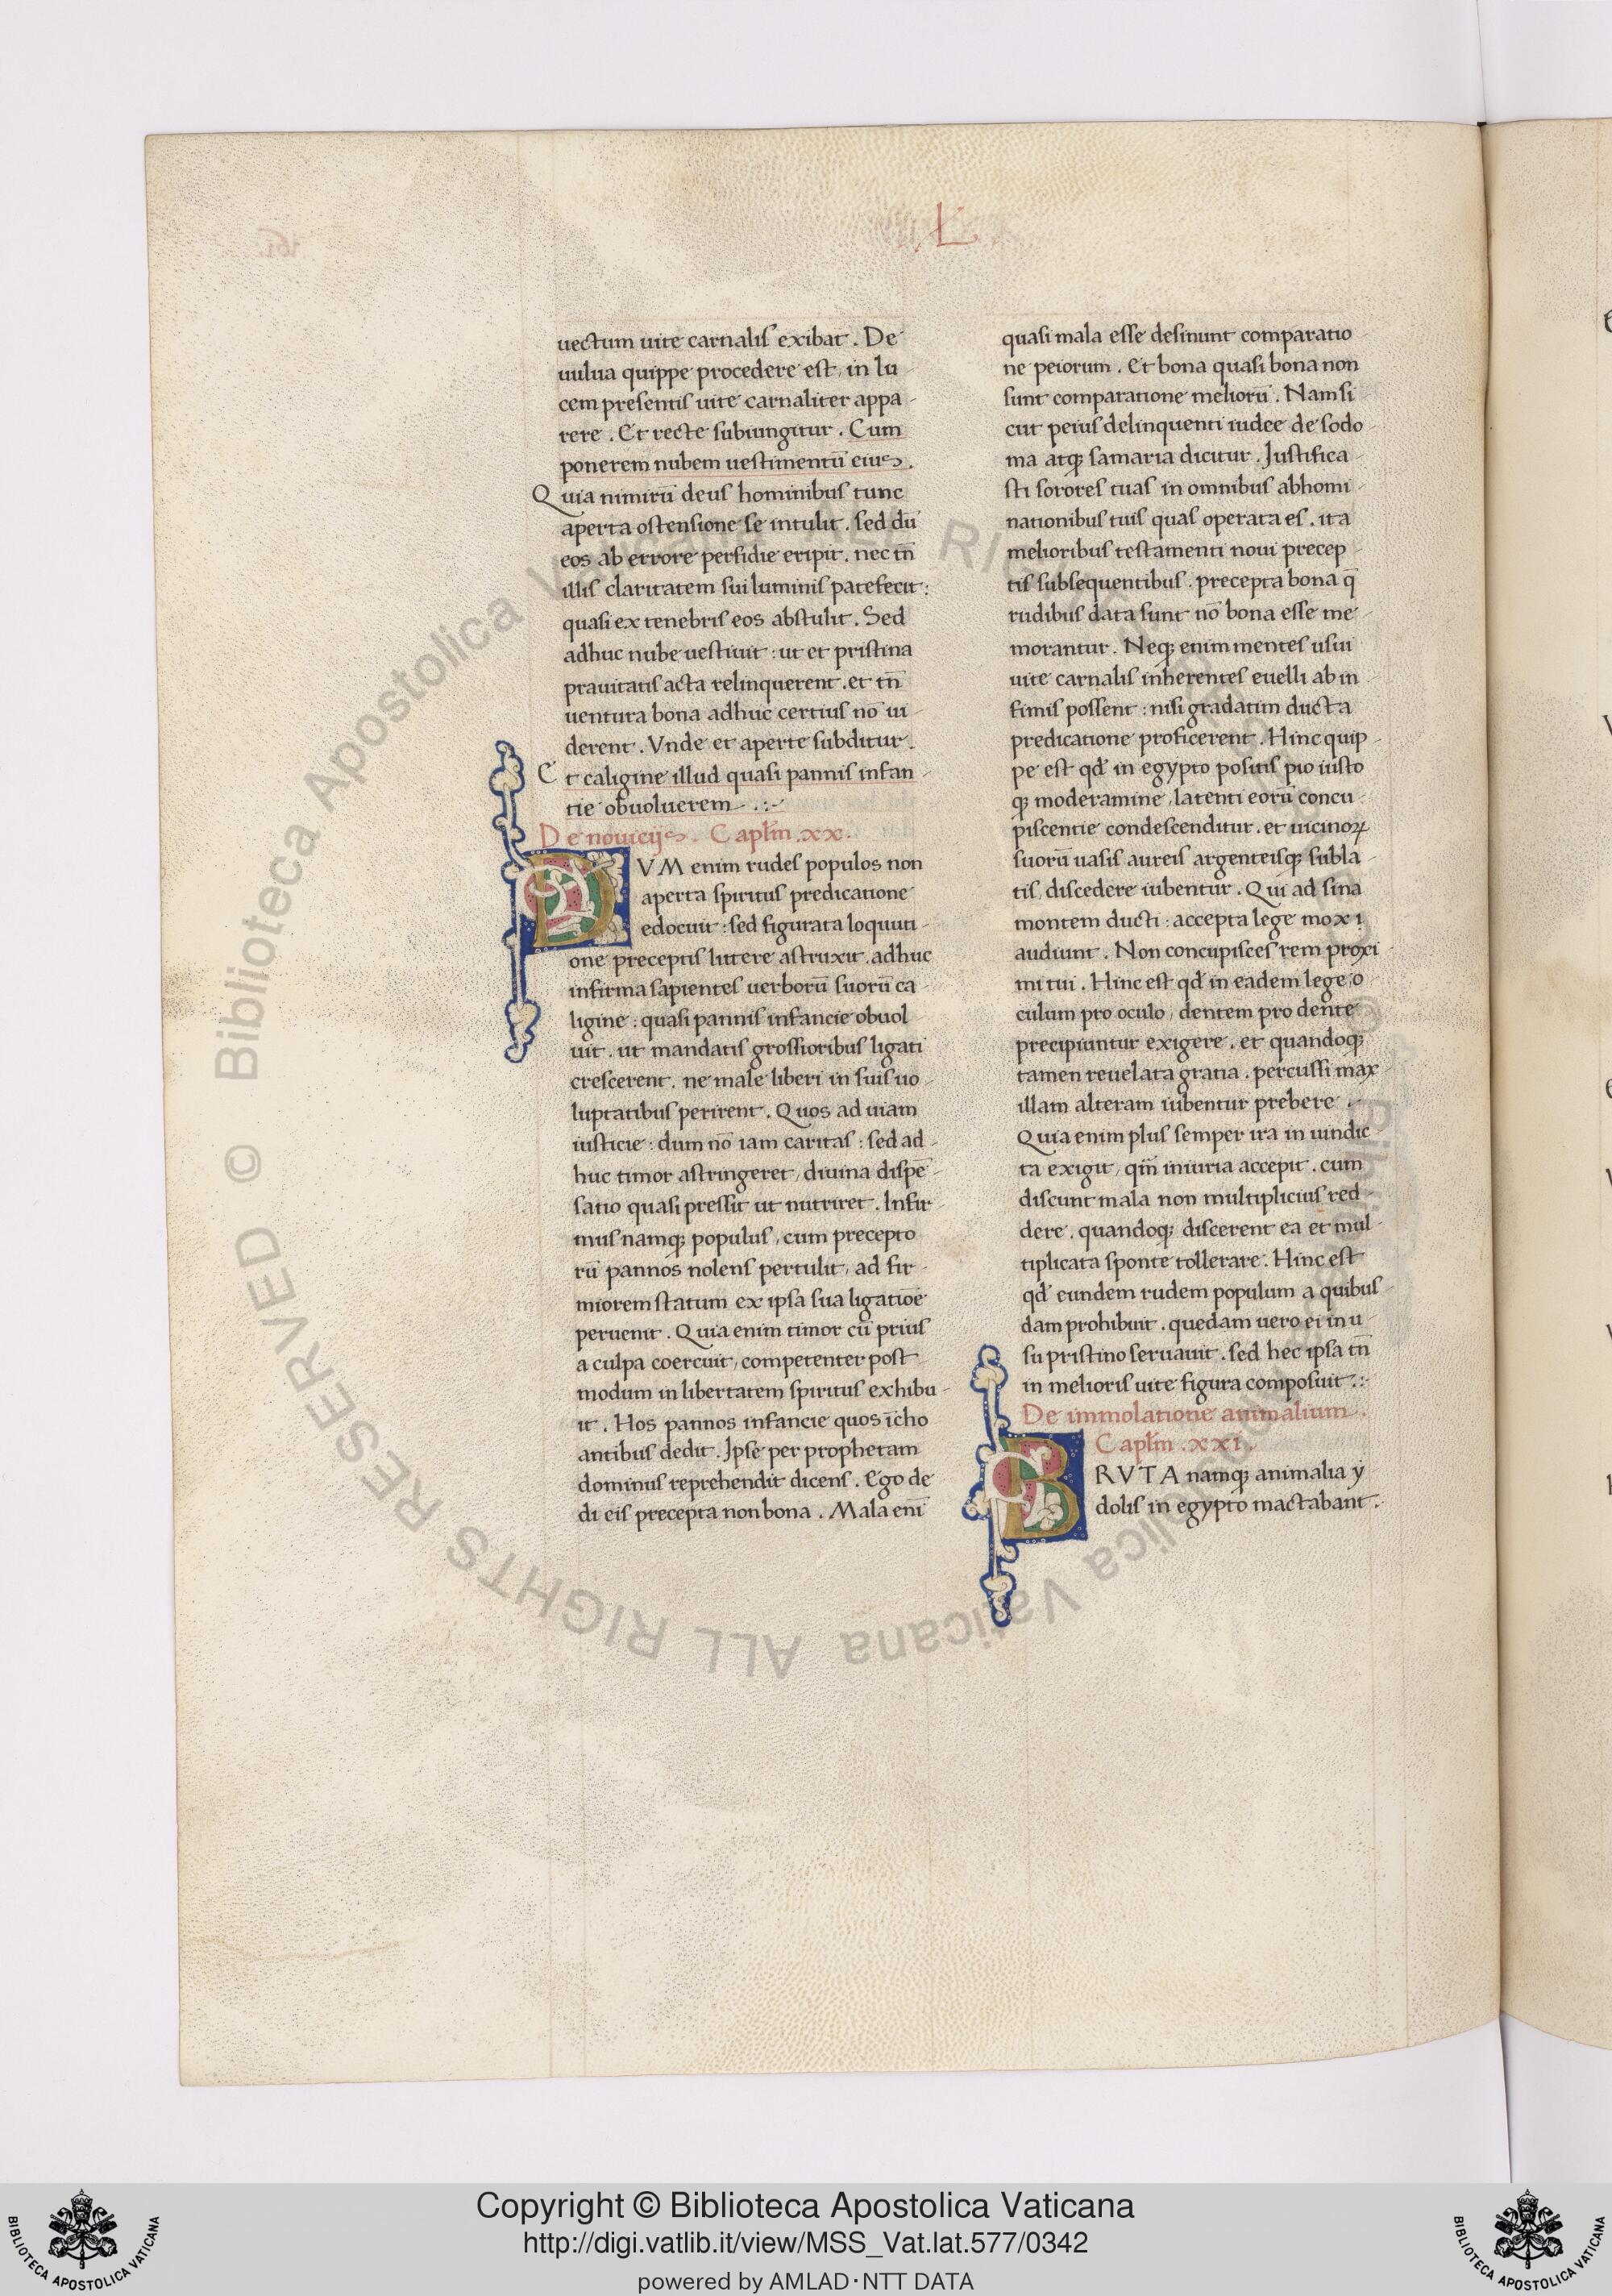 .L.
uectum uite carnalis exibat. De
uulua quippe procedere est, in lu-
cem presentis uite carnaliter appa-
rere. Et recte subiungitur. Cum
ponerem nubem uestimentū eius.
Quia nimirū deus hominibus tunc
aperta ostensione se intulit. sed dū
eos ab errore perfidie eripit. nec tn̄
illis claritatem sui luminis patefecit:
quasi ex tenebris eos abstulit. Sed
adhuc nube uestiuit: ut et pristina
prauitatis acta relinquerent. et tn̄
uentura bona adhuc certius nō ui-
derent. Vnde et aperte subditur.
Et caligine illud quasi pannis infan-
tie obuoluerem.:-
De nouicijs. Caplm̄.xx.
DVM enim rudes populos non
aperta spiritus predicatione
edocuit: sed figurata loquuti-
one preceptis littere astruxit. adhuc
infirma sapientes uerborū suorū ca-
ligine: quasi pannis infancie obuol
uit. ut mandatis grossioribus ligati
crescerent. ne male liberi in suis uo-
luptatibus perirent. Quos ad uiam
iusticie: dum nō iam caritas: sed ad-
huc timor astringeret, diuina dispē-
satio quasi pressit ut nutriret. Infir-
mus namq; populus, cum precepto
rū pannos nolens pertulit, ad fir-
miorem statum ex ipsa sua ligatiōe
peruenit. Quia enim timor cū prius
a culpa coercuit, competenter post
modum in libertatem spiritus exhibu-
it. Hos pannos infancie quos īcho
antibus dedit. Ipse per prophetam
dominus reprehendit dicens. Ego de
di eis precepta non bona. Mala enī
quasi mala esse desinunt comparatio
ne peiorum. Et bona quasi bona non
sunt comparatione meliorū. Nam si
cut peius delinquenti iudee de sodo-
ma atq; samaria dicitur. Iustifica-
sti sorores tuas in omnibus abhomi-
nationibus tuis quas operata es. ita
melioribus testamenti noui precep-
tis subsequentibus. precepta bona q̄
rudibus data sunt nō bona esse me-
morantur. Neq; enim mentes usui
uite carnalis inherentes euelli ab in-
fimis possent: nisi gradatim ducta
predicatione proficerent. Hinc quip-
pe est qd̄ in egypto positis pio iusto
q; moderamine, latenti eorū concu-
piscentie condescenditur. et uicinoꝝ
suorū uasis aureis argenteisq; subla-
tis, discedere iubentur. Qui ad sina
montem ducti: accepta lege mox
audiunt. Non concupisces rem proxi-
mi tui. Hinc est qd̄ in eadem lege, o
culum pro oculo, dentem pro dente
precipiuntur exigere. et quandoq;
tamen reuelata gratia. percussi max-
illam alteram iubentur prebere.
Quia enim plus semper ira in uindic-
ta exigit, qm̄ iniuria accepit. cum
discunt mala non multiplicius red-
dere. quandoq; discerent ea et mul-
tiplicata sponte tollerare. Hinc est
qd̄ eundem rudem populum a quibus-
dam prohibuit. quedam uero ei in u-
su pristino seruauit. sed hec ipsa tn̄
in melioris uite figura composuit.:-
De immolatione animalium.
Caplm̄.xxi.
BRVTA namq; animalia y
dolis in egypto mactabant.
© Biblioteca Apostolica Vaticana ALL RIGHTS RESERVED
Copyright © Biblioteca Apostolica Vaticana
http://digi.vatlib.it/view/MSS_Vat.lat.577/0342
powered by AMLAD·NTT DATA
BIBLIOTECA APOSTOLICA VATICANA
BIBLIOTECA APOSTOLICA VATICANA